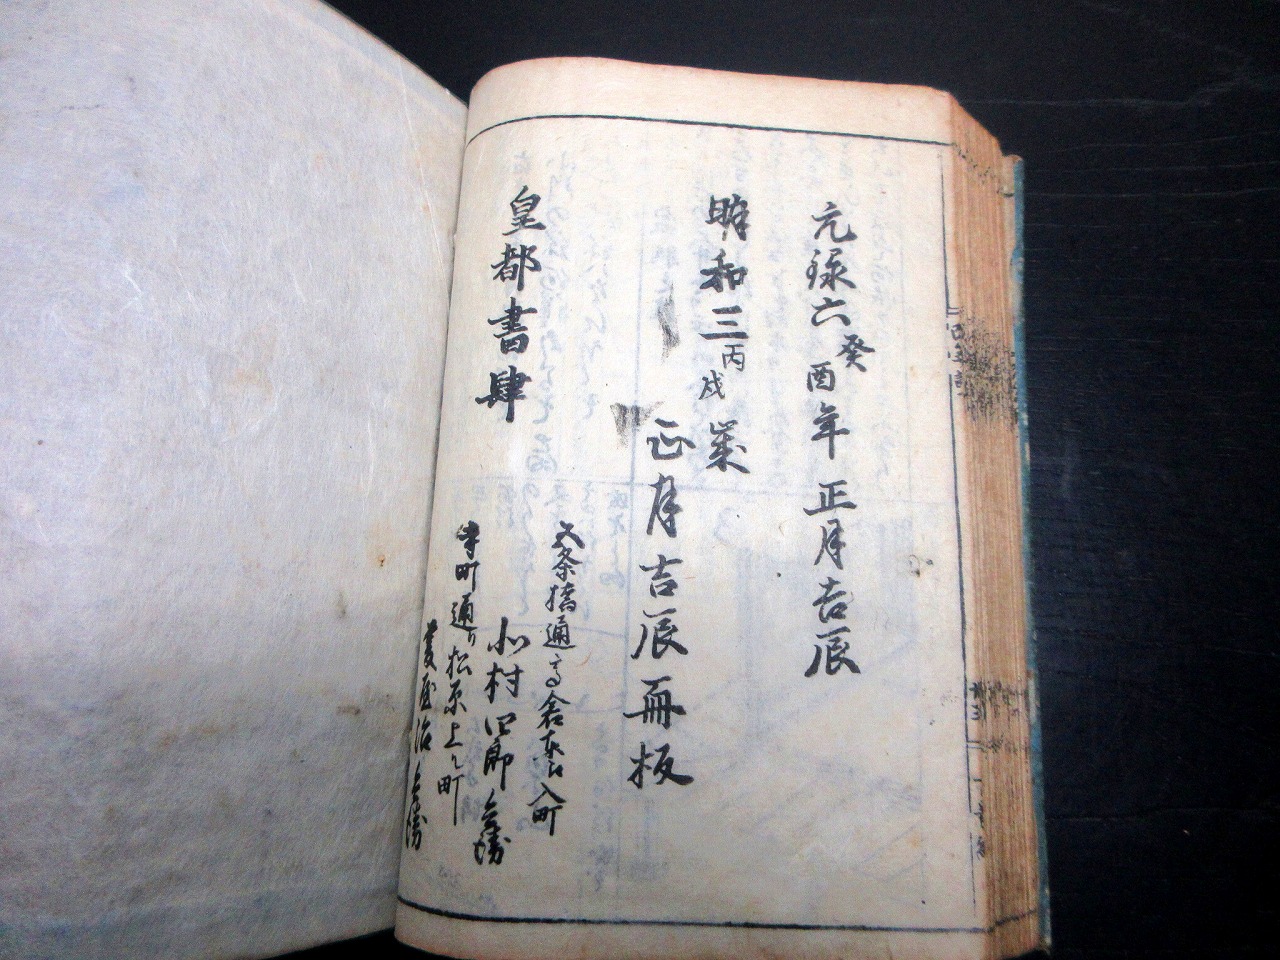 元禄六癸酉年正月吉辰
明和三丙戌歳
正月吉辰再板
皇都書肆
五条橋通高倉東ヘ入町
北村四郎兵衛
寺町通リ松原上ル町
菱屋治兵衛